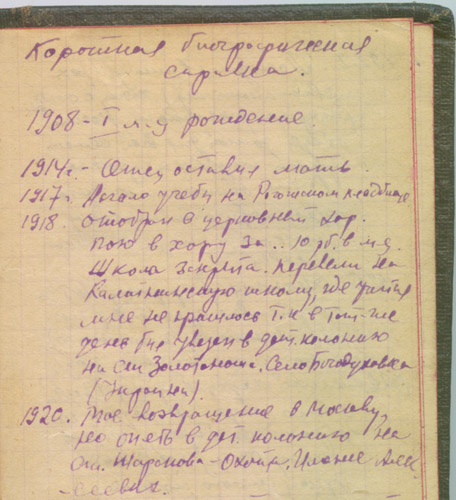 Короткая биографическая
справка.
1908 - I м-ц рождение.
1914г. - Отец оставил мать.
1917г. Начало учебы на Рогожском кладбище
1918. отобран в церковный хор.
пою в хору за .. 10 рб. в м-ц.
Школа закрыта. перевели на
Калитниковскую школу, где учится
мне не пришлось т.к в тот-же
день был увезен в дет. колонию
на ст. Золотоноша. Село Богодуховка
(Украина).
1920. Мое возвращение в Москву,
но опеть в дет. колонию на
ст.